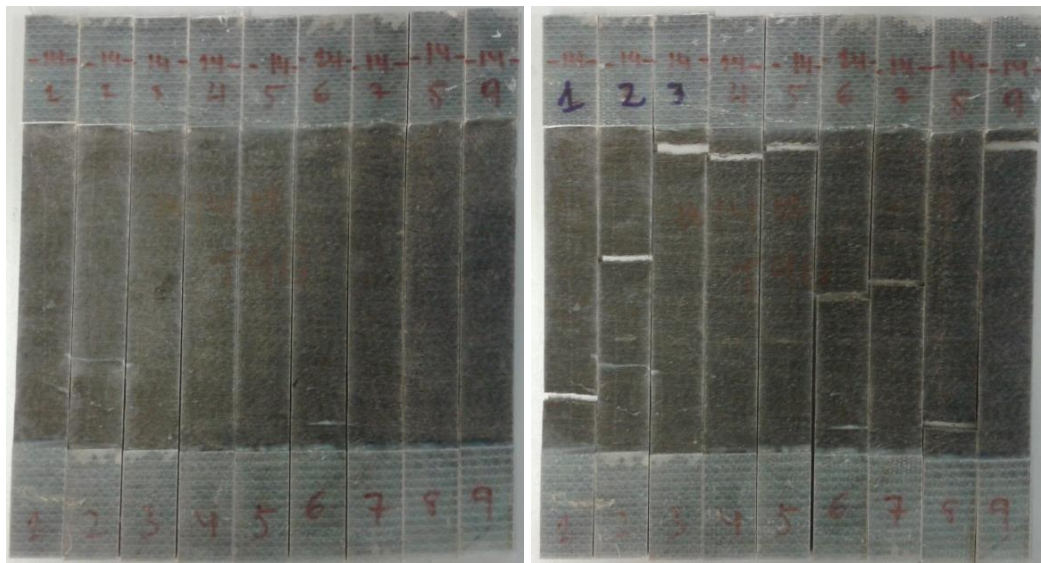 -14- -14- 14 14- -14- -14- -14- -14 -14-
1 2 3 4 5 6 7 8 9
1 2 3 4 5 6 7 8 9
-14- -14 -14 14 -14 -14 -14- -14 -14
1 2 3 4 5 6 7 8 9
1 2 3 4 5 6 7 8 9